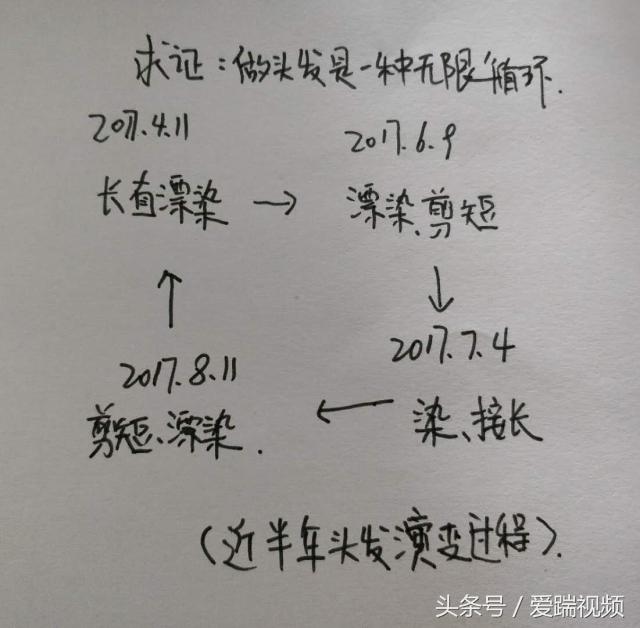 求证：做头发是一种无限循环.
2017.4.11
长直漂染
→
2017.6.9
漂染、剪短
↓
2017.7.4
染、接长
←
2017.8.11
剪短、漂染.
↑
(近半年头发演变过程).
头条号 / 爱踹视频